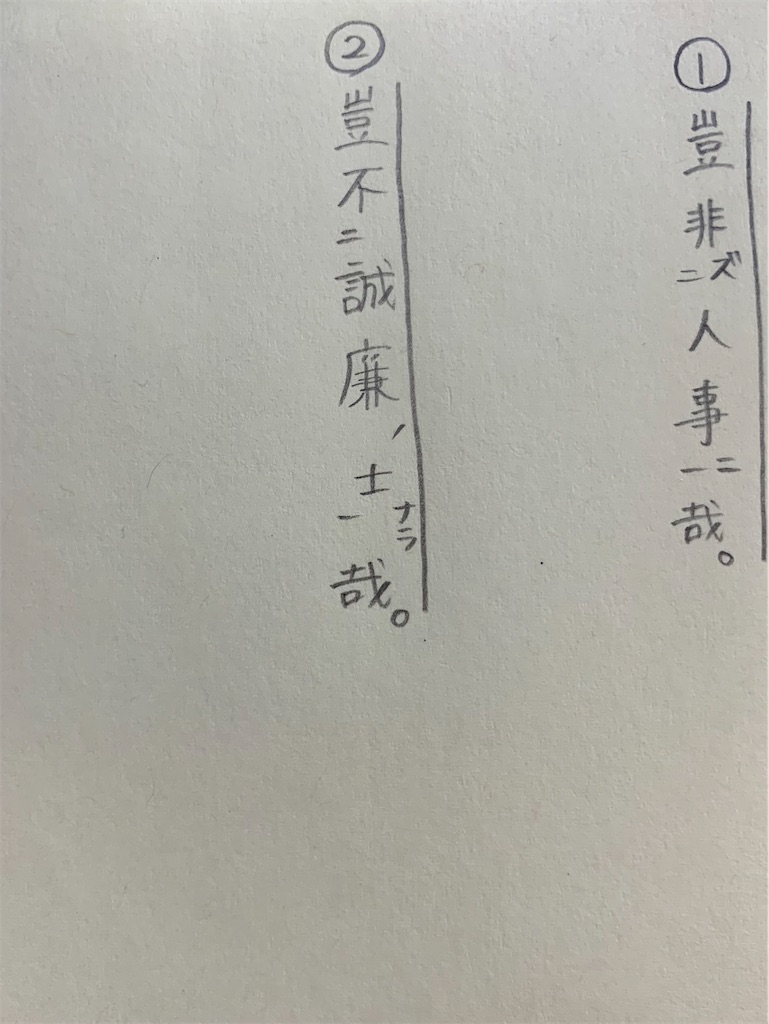 ① 豈非ズ二人事ニ一哉。
② 豈不二誠廉ノ士ナラ一哉。